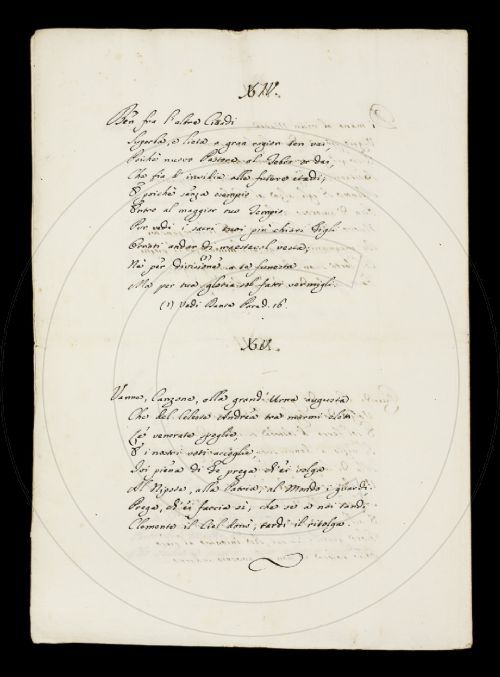 XIV.
Ben fra l'altre Città di
Superba, e lieta a gran ragion ten vai,
Poichè nuovo Pastore al Tebro or dai,
Che fia d'invidia alle future etadi;
E poichè senza esempio
Entro al maggior tuo Tempio
Pur vedi i sacri tuoi più chiari Figli
Ornati andar di maestevol veste;
Nè per division (1) a te funesta
Ma per tua gloria sol fatti vermigli.
(1) Vedi Dante Parad. 16.
XV.
Vanne, Canzone, alla grand'Urna augusta
Che del Celeste Andrea tra marmi eletti
Le venerate spoglie,
E i nostri voti accoglie,
Poi piena di Fe prega ch'ei volga
Al Nipote, alla Patria, al Mondo i guardi:
Prega, ch'ei faccia sì, che se a noi tardi
Clemente il Ciel donò, tardi il ritolga.